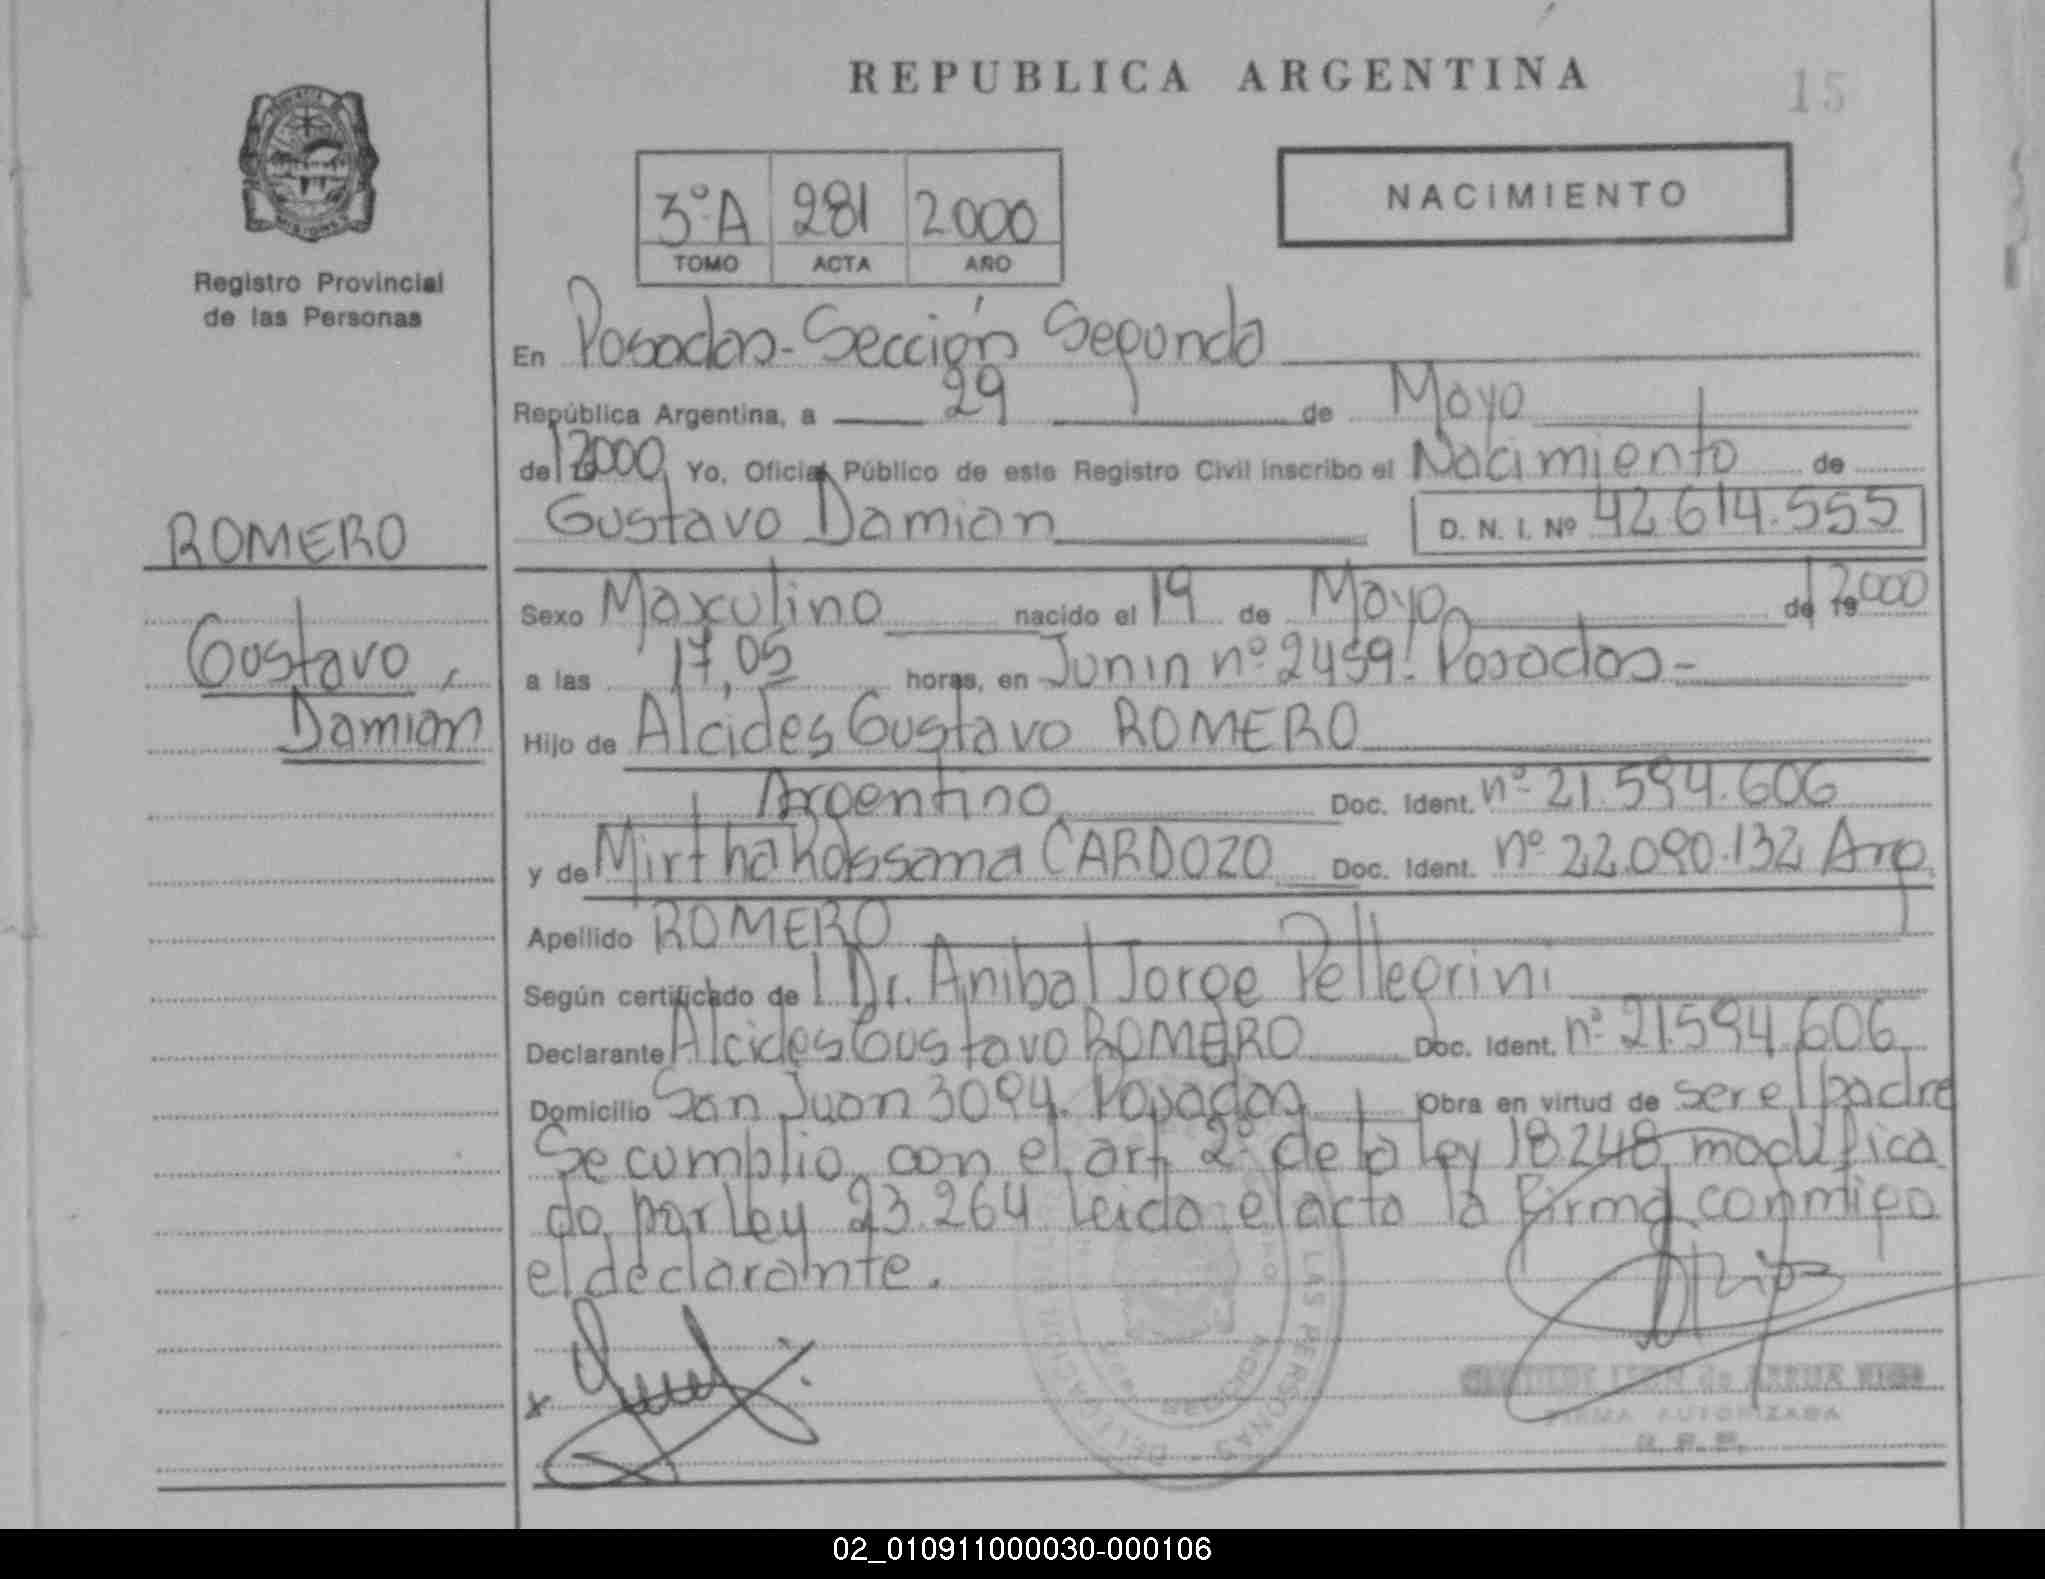 REPUBLICA ARGENTINA
15
NACIMIENTO
3º A 281 2000
TOMO ACTA AÑO
Registro Provincial
de las Personas
En Posadas - Sección Segunda
República Argentina, a 29 de Mayo
de 19 2000 Yo, Oficial Público de este Registro Civil inscribo el Nacimiento de
Gustavo Damian D. N. I. Nº 42.614.555
ROMERO
Gustavo,
Damian
Sexo Maxculino nacido el 19 de Mayo de 19 2000
a las 17,05 horas, en Junin nº 2459. Posadas -
Hijo de Alcides Gustavo ROMERO
Argentino Doc. Ident. nº 21.594.606
y de Mirtha Rossana CARDOZO Doc. Ident. nº 22.090.132 Arg.
Apellido ROMERO
Según certificado de Dr. Anibal Jorge Pellegrini
Declarante Alcides Gustavo ROMERO Doc. Ident. nº 21.594.606
Domicilio San Juan 3094. Posadas Obra en virtud de ser el padre
Se cumplio con el art 2º de la ley 18.248 modifica
do por ley 23.264 leido el acta la firma conmigo
el declarante.
LAS PERSONAS
FIRMA AUTORIZADA
R. P. P.
02_010911000030-000106